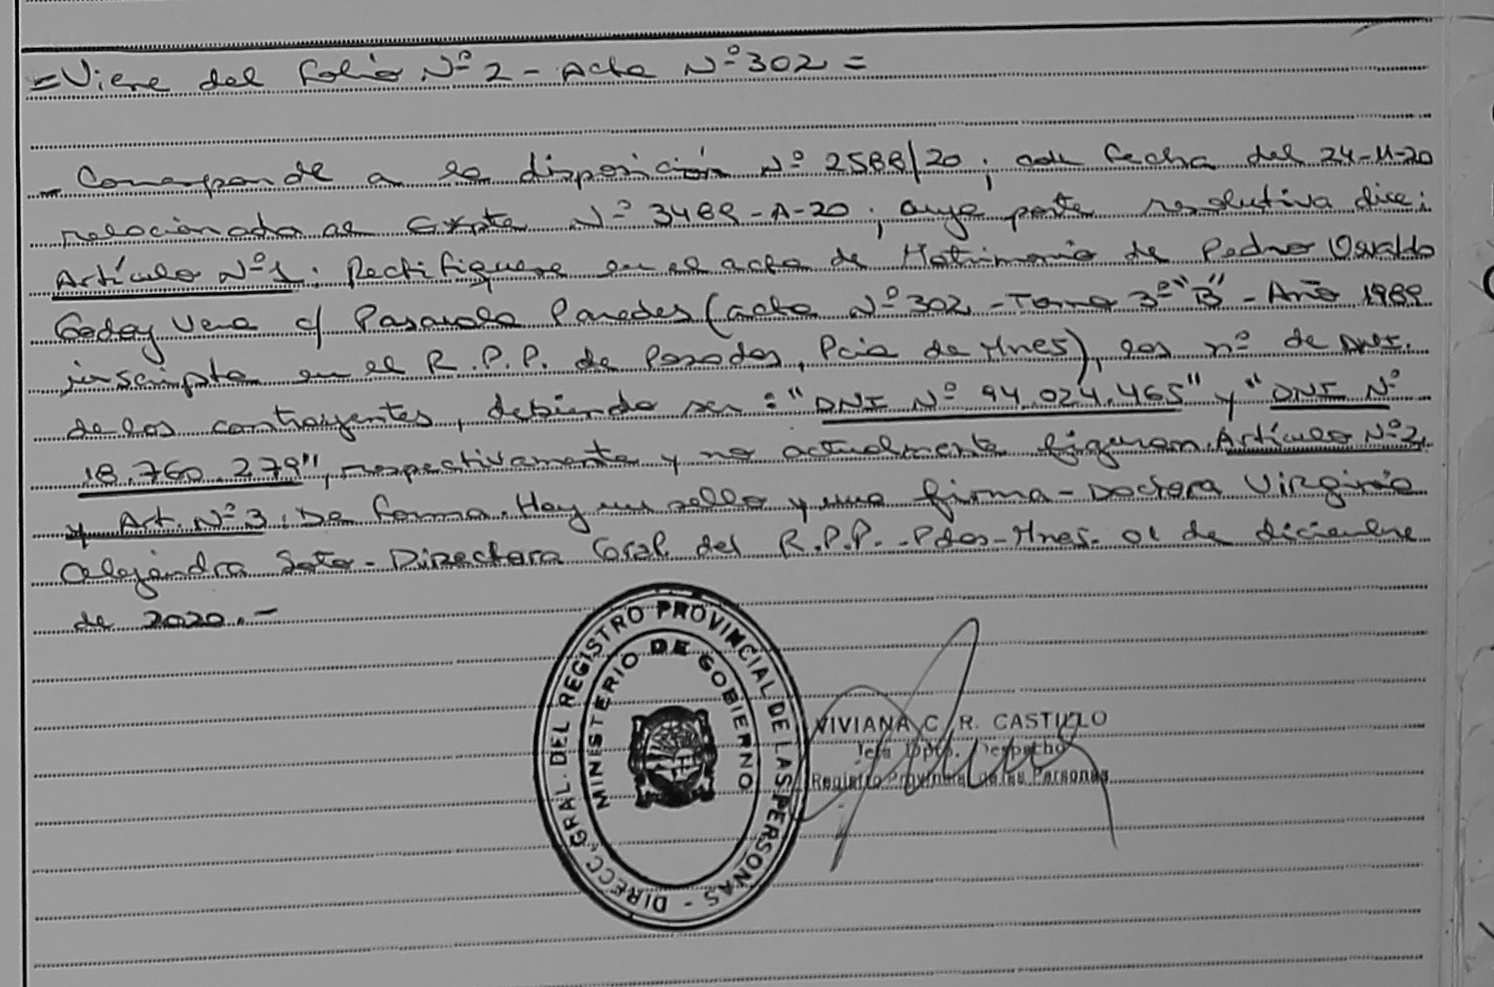 = Viene del Folio Nº 2 - Acta Nº 302 =
- Corresponde a la disposición Nº 2588/20; con fecha del 24-11-20
relacionada al Expte Nº 3489-A-20; cuya parte resolutiva dice:
Artículo Nº 1: Rectifiquese en el acta de Matrimonio de Pedro Osvaldo
Godoy Vera c/ Paredes (acta Nº 302 - Tomo 3º "B" - Año 1989
inscripta en el R.P.P. de Posadas, Pcia de Mnes), los nº de DNI.
de los contrayentes, debiendo ser: "DNI Nº 94.024.465" y "DNI Nº
18.760.279", respectivamente y no actualmente figuran. Artículo Nº 2,
y Art. Nº 3: De forma. Hay un sello y una firma - Doctora Virginia
Alejandra Soto - Directora Gral. del R.P.P. - Pdas - Mnes. 01 de diciembre
de 2020.-
DIRECC. GRAL. DEL REGISTRO PROVINCIAL DE LAS PERSONAS -
MINISTERIO DE GOBIERNO
VIVIANA C. R. CASTILLO
Jefa Dpto. Despacho
Registro Provincial de las Personas